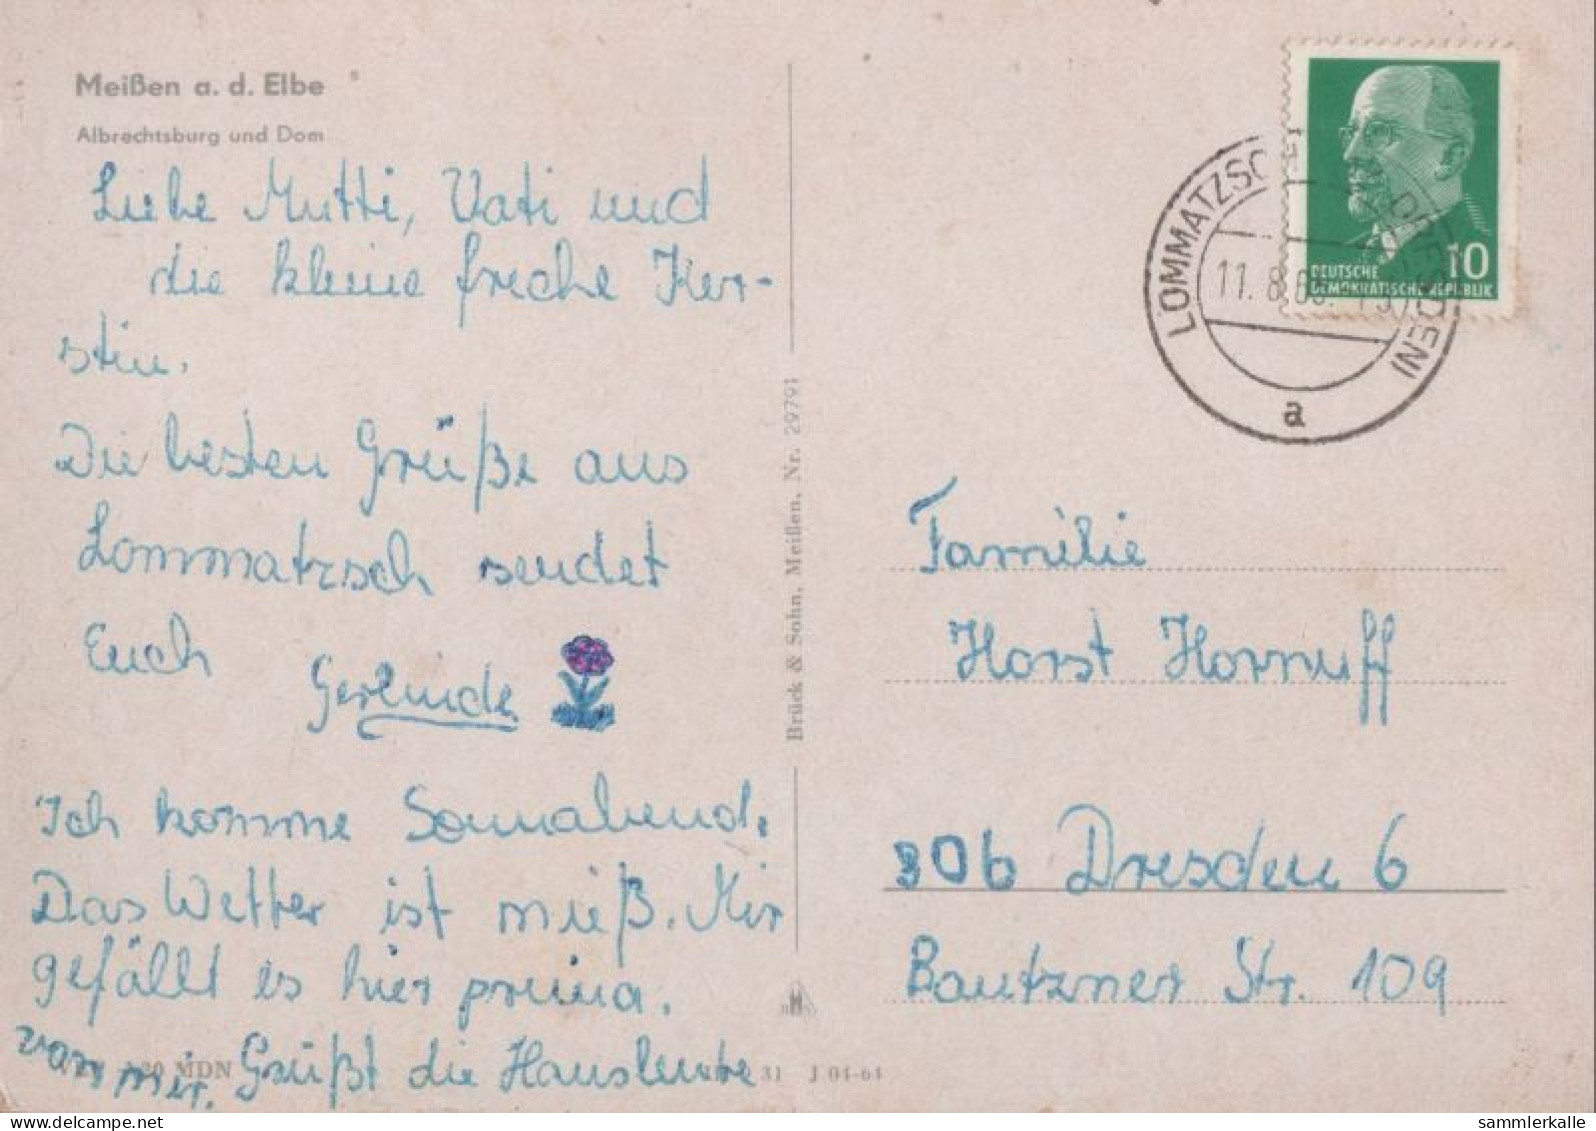 Meißen a. d. Elbe
Albrechtsburg und Dom
Liebe Mutti, Vati und
die kleine freche Ker-
stin.
Die besten Grüße aus
Lommatzsch sendet
Euch
Gerlinde
Ich komme Sonnabend.
Das Wetter ist mieß. Mir
gefällt es hier prima.
Grüßt die Hausleute
von mir.
20 MDN
31 J 04-64
Brück & Sohn, Meißen, Nr. 29791
DEUTSCHE
DEMOKRATISCHE REPUBLIK
10
LOMMATZSC
DRESDEN
11. 8.
a
Familie
Horst Hornuff
806 Dresden 6
Bautzner Str. 109
sammlerkalle
delcampe.net